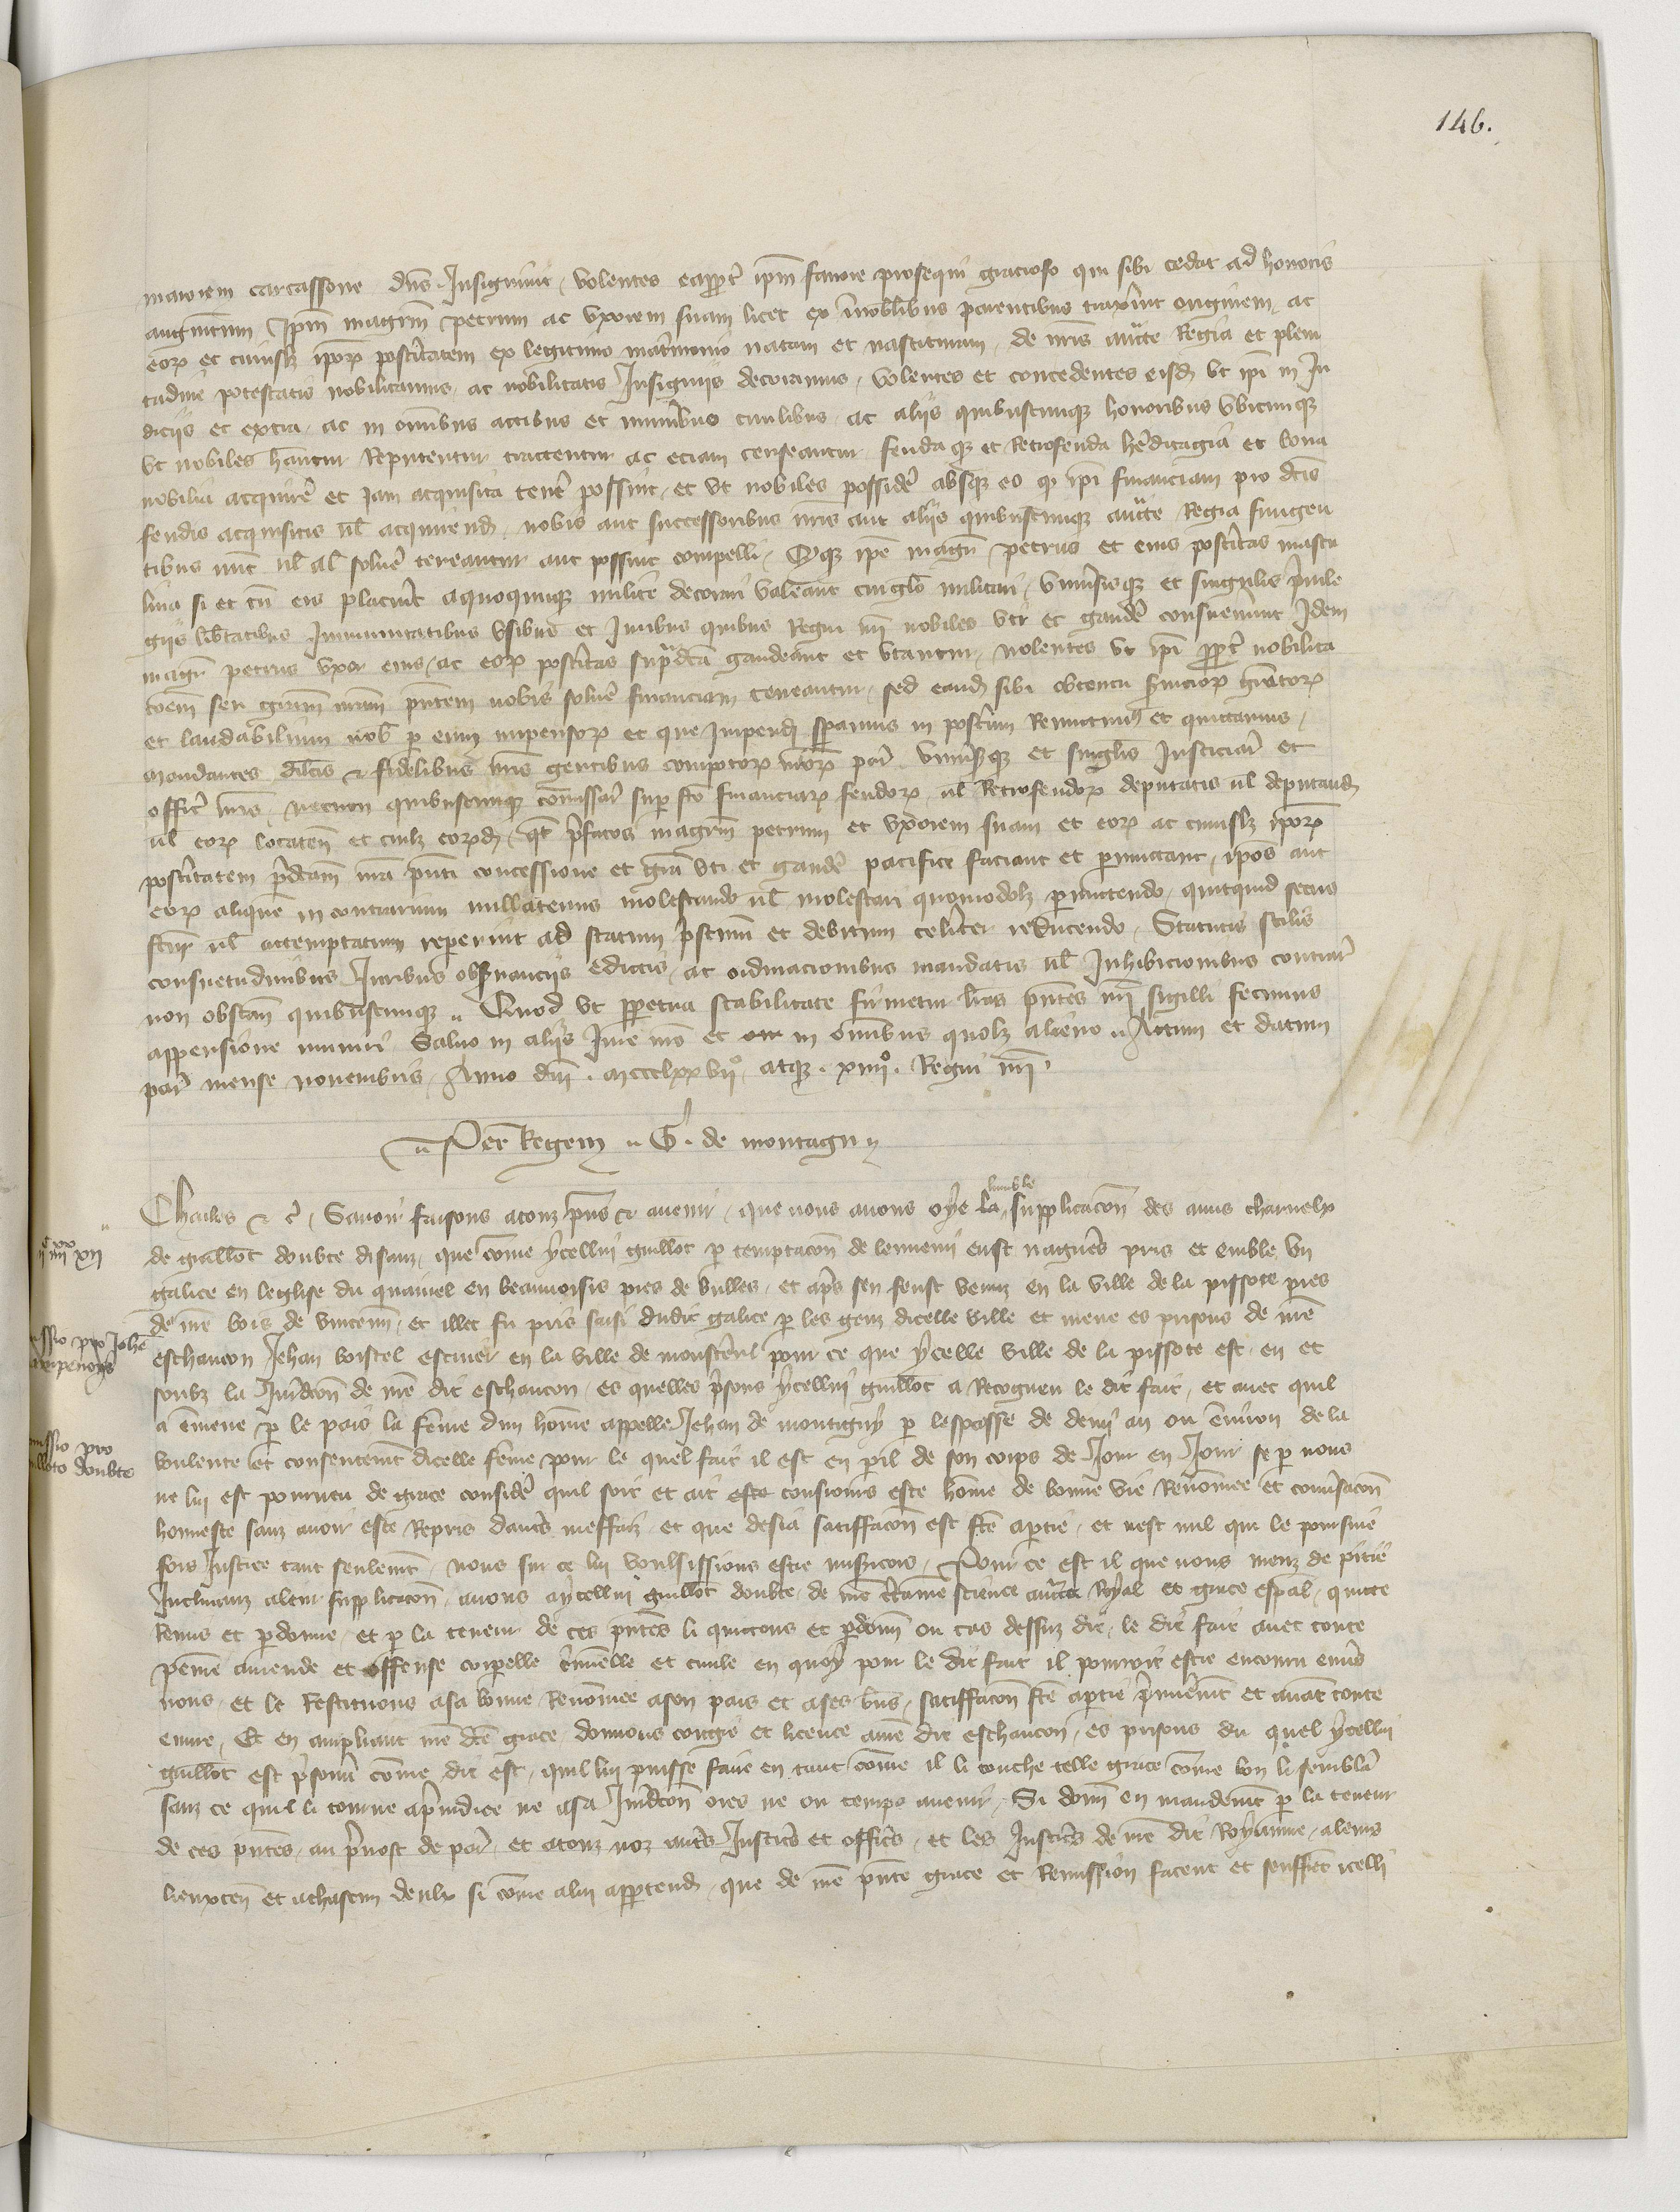 146.
maiorem carcassone dn̄s Insigniuit, volentes eapropt̾ ip̄m fauore prosequi gracioso qui sibi cedat ad honoris
augm̄tum Ip̄m magr̄m petrum ac vxorem suam licet ex īnobilibus parentibus trax̾int originem, ac
eoꝝ et cuiuslꝫ ip̄oꝝ post̾itatem ex legitimo mat̾monio natam et nascituram, de nr̄is auct̄te Regia et pleni
tudine potestatis nobilitamus, ac nobilitatis Insignijs decoramus, volentes et concedentes eisd̄ vt ip̄i in Iu
dicijs et extra, ac in om̄ibus actibus et mun̾ibus ciuilibus, ac alijs quibuscunqꝫ honoribus vbicunqꝫ
vt nobiles hēantur Reputentur tractentur ac eciam censeantur feuda qꝫ et Retrofeuda h̾editagia et bona
nobiliū acquirē et jam acquisita ten̾e possint, et vt nobiles possid̾e absqꝫ eo qꝫ ip̄i financiam pro dc̄is
feudis acquisitis vl̄ acquirend̄, nobis aut successoribus nr̄is aut alijs quibuscunqꝫ auct̄te Regia fungen
tibus nūc vl̄ al̄ solu̾e teneantur aut possint compelli, Qqꝫ ip̄e magr̄ petrus et eius post̾itas mascu
lina si et cū eis placu̾it aquoqunqꝫ milite decorari valeant cinglo militari, Vniu̾sisqꝫ et singulis p̾uile
gijs lib̾tatibus Immunitatibus vsibus et Iuribus quibus Regni nr̄i nobiles vti et gaud̾e consueuerunt Idem
magr̄ petrus vxor eius, ac eoꝝ post̾itas sup̾dc̄a gaudeant et vtantur, nolentes vt ip̄i propt̾ nobilita
coēm seu gr̄am nr̄am pn̄tem nobis solu̾e financiam teneantur, sed eand̄ sibi obtentu s̾uicioꝝ gratoꝝ
et laudabilium nob̄ ꝑ eum impensoꝝ et que Impend̄ sp̾amus in post̾um Remittimus et quittamus,
Mandantes dil̄cis & fidelibus nr̄is gentibus compotoꝝ nr̄oꝝ par̄ vniu̾sisqꝫ et singl̄is Justiciar̄ et
officir̄ nr̄is, necnon quibuscunqꝫ com̄issar̄ super fc̄o financiaꝝ feudoꝝ vl̄ Retrofeudoꝝ deputatis vl̄ deputand̄
vl̄ eoꝝ locaten̄ et cuilꝫ eoꝝd̄, qt̄ p̾fatos magr̄m petrum et vxorem suam et eoꝝ ac cuiuslꝫ ip̄oꝝ
post̾itatem p̾dc̄am nr̄a pn̄ti concessione et gr̄a vti et gaud̾e pacifice faciant et permictant, ip̄os aut
eoꝝ aliquē in contrarium nullatenus molestando vl̄ molestari quomodolꝫ permictendo, quitquid secus
fc̄m vl̄ attemptatum reperint ad statum p̾stinū et debitum cel̾iter reducendo, Statutis stilis
consuetudinibus Iuribus obs̾uancijs edictis, ac ordinacionibus mandatis vl̄ Inhibicionibus contrar̄
non obstan̄ quibuscunque „ Quod vt perpetua stabilitate firmetur lr̄as pn̄tes nr̄i sigilli fecimus
appensione muniri, Saluo in alijs Iure nr̄o et in om̄ibus quolꝫ alieno „ Actum et datum
par̄ mense nouembris, Anno dn̄i . mccclxxvij°, atqꝫ . xiiij°. Regni nr̄i
„ Per Regem „ G. de montagu „
humble
Charles & c̄, Sauoir faisons atouz pn̄s & auenir, que nous auons oye la supplicacōn des amis charnelx
de guillot doubte disanz, que cōme ycellui guillot ꝑ temptacōn de lennemi eust nagu̾es pris et emble vn
galice en leglise du quainel en beauuoisis pres de bulles, et ap̾s sen feust venuz en la ville de la pissote pres
de nr̄e bois de vincenn̄, et illec fu pris saisi dudit galice ꝑ les genz dicelle ville et mene es prisons de nr̄e
eschancon Jehan boistel escuier en la ville de monst̾eul pour ce que ycelle ville de la pissote est, en et
soubz la Iurid̄con de nr̄e dit eschancon, es quelles p̾sons ycellui guillot a Recogneu le dit fait, et auec quil
a ēmene ꝑ le pais la fēme dun hōme appelle Jehan de montigny ꝑ lespasse de demi an ou enuiron de la
voulente et consentemēt dicelle fēme pour le quel fait il est en peril de son corps de Jour en Jour se ꝑ nous
ne lui est pourueu de grace consid̾e quil soit et ait este tousiours este hōme de bonne vie Renōmee et conu̾sacōn
honneste sanz auoir este Repris dautres meffaiz, et que desia satiffacōn est fc̄e apartie, et nest nul qui le poursuie
fors Justice tant seulemēt, nous sur ce lui voulsissions estre mis̾icors, Pour ce est il que nous meuz de pitie
Inclinanz aleur supplicacōn, auons aycellui guillot doubte, de nr̄e c̾taine science auct̄te Royal et grace esp̄al, quitte
Remis et perdonne, et ꝑ la teneur de ces pn̄tes li quittons et perdonn̄ ou cas dessuz dit, le dit fait auec toute
peine amende et offense corpelle c̾minelle et ciuile en quoy pour le dit fait il pourroit estre encouru enu̾s
nous, et le Restituons asa bonne Renōmee ason pais et ases biens, satiffacōn fc̄e apartie p̾mierem̄t et auāt toute
euure, Et en ampliant nr̄e dc̄e grace, donnons congie et licence anr̄e dit eschancon, es prisons du quel ycellui
guillot est p̾sonn̄ cōme dit est, quil lui puisse faire en tant cōme il li touche telle grace cōme bon li semblera
sanz ce quil li tourne ap̾iudice ne asa Iurid̄con ores ne ou temps auenir, Si donn̄ en mandement ꝑ la teneur
de ces pn̄tes, au p̾uost de par̄, et atouz noz autres Justic̾s et offic̾s, et les Justic̾s de nr̄e dit Royaume, aleurs
lieuxten̄ et achascun deulx si cōme alui appartend̄, que de nr̄e pn̄te grace et Remission facent et seuffrēt icelli
iiijˣˣ xij
issio pro Joh̄e
missio pro
illoto doubte